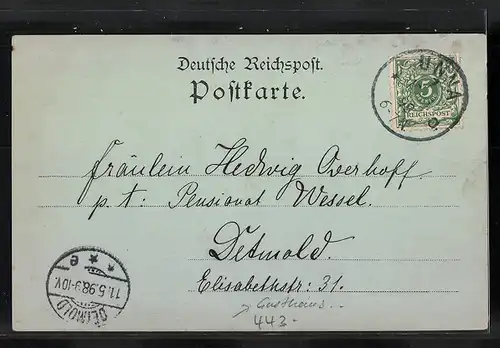 Deutsche Reichspost.
Postkarte.
UNNA
5
REICHSPOST
Fräulein Hedwig Overhoff.
p. t: Pensionat Wessel.
Detmold.
Elisabethstr: 31.
DETMOLD
11.5.98.9-10V.
* * e
Gasthaus
443.